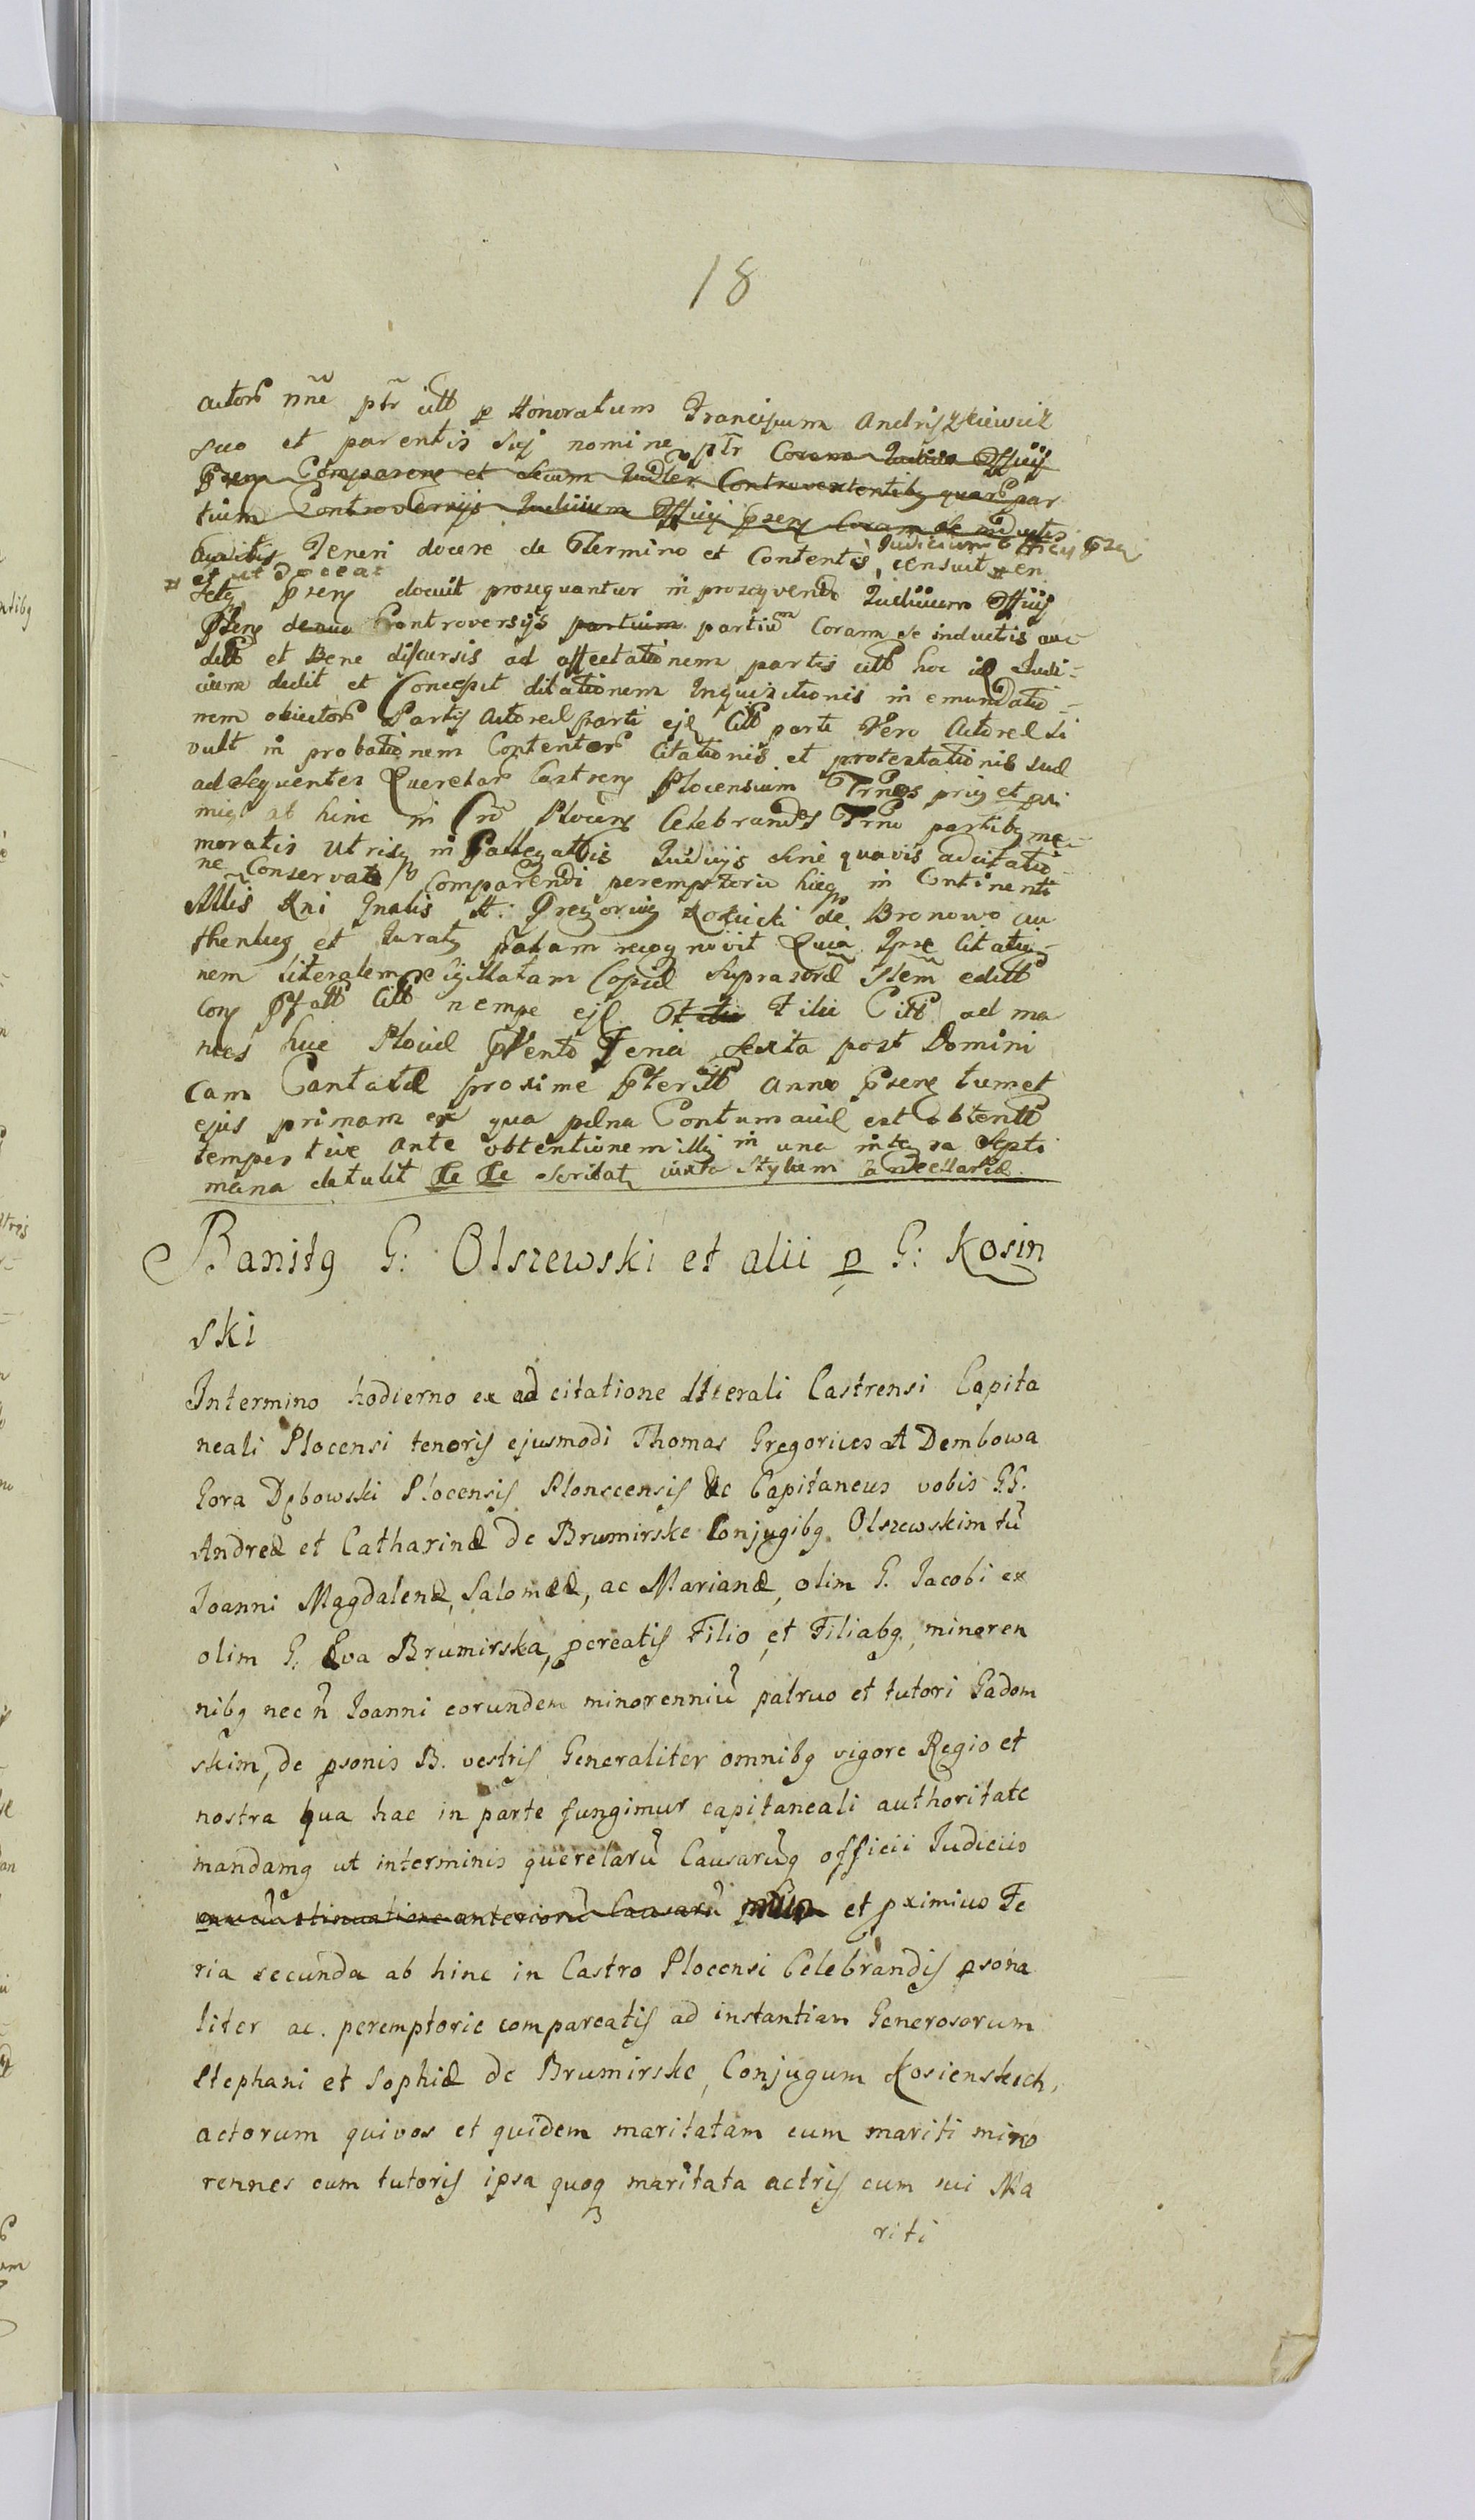 18
actor nne ptr citt p Honoratum Franciscum Andryszkiewicz
suo et parentis sui nomine ptr Coram Iudicio Officij
Prsen Comparens et secum Iudler Controvertentibg quar par
tium Controversijs Iudicium Officij prsens Coram se inductis
Auditis Teneri docere de Termino et Contentis, Iudicium Officij prsen censuit en
et ut doceat
prsens docuit prosequantur in prosequendo Iudicium Officij
Prsens denuo Controversijs partium partium Coram se inductis au
ditt et Bene discursis ad affectationem partis citt hoc id Iudi
cium dedit et Concessit dilationem Inquisitionis in emundatio
nem obiector Partis Actoreæ parti ejq Citt parti Vero Actoreæ si
vult in probationem Contentor Citationis et protestationis suæ
ad sequentes Querelar Castrens Plocensium Trnos prius et proxi
mies ab hinc in Cro Plocens Celebrand Trnu partibg me
moratis Utrisq in Iudicijs sine quavis adcitatio
ne Conservato Comparendi peremptorie hicq in Continenti
Mtlis Rni Gnalis N: Gregorius Kosicki de Bronowo au
thenticg et Iuratg palam recognovit Quia Ipse Citatio
nem literalem sigillatam Copiæ Suprascræ Item editt
nempe Filii Citt ad ma
nus huc Plociæ Feria Sexta post Domini
cam Cantatæ proxime prteritt anno prsens tum et
ejus primam ex qua plna Contumaciæ est obtentt
tempestive ante obtentionem illg in una integra Septi
mana detulit scribatg iuxta Stylum Cancellariæ
Banitg G: Olszewski et alii p G: Kosin
ski
Intermino hodierno ex ad citatione literali Castrensi Capita
neali Plocensi tenoris ejusmodi Thomas Gregorius A Dembowa
Gora Dębowski Plocensis Plonscensis &c Capitaneus vobis GG.
Andreæ et Catharinæ de Brumirske Conjugibg Olszewskim tu
Ioanni Magdalenæ, Salomeæ, ac Marianæ, olim G. Iacobi ex
olim G. Eva Brumirska, pcreatis Filio et Filiabg, minoren
nibg nec n Ioanni eorundem minorenniu patruo et tutori Gadom
skim, de psonis B. vestris Generaliter omnibg vigore Regio et
nostra qua hac in parte fungimur capitaneali authoritate
mandamg ut interminis querelaru Causaruq officii Iudiciio
continuatione anterioru Causaru et pximius Fe
ria secunda ab hinc in Castro Plocensi Celebrandis psona
liter ac. peremptorie compareatis ad instantiam Generosorum
Stephani et Sophiæ de Brumirske, Conjugum Kosienskich,
actorum qui vos et quidem maritatam cum mariti mino
rennes cum tutoris ipsa quoq maritata actris cum sui Ma
riti